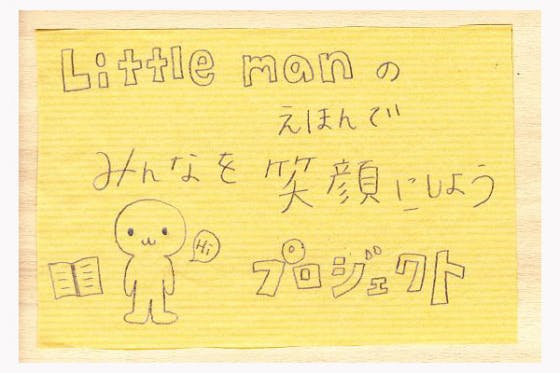 Little man の
えほんで
みんなを 笑顔にしよう
Hi
プロジェクト